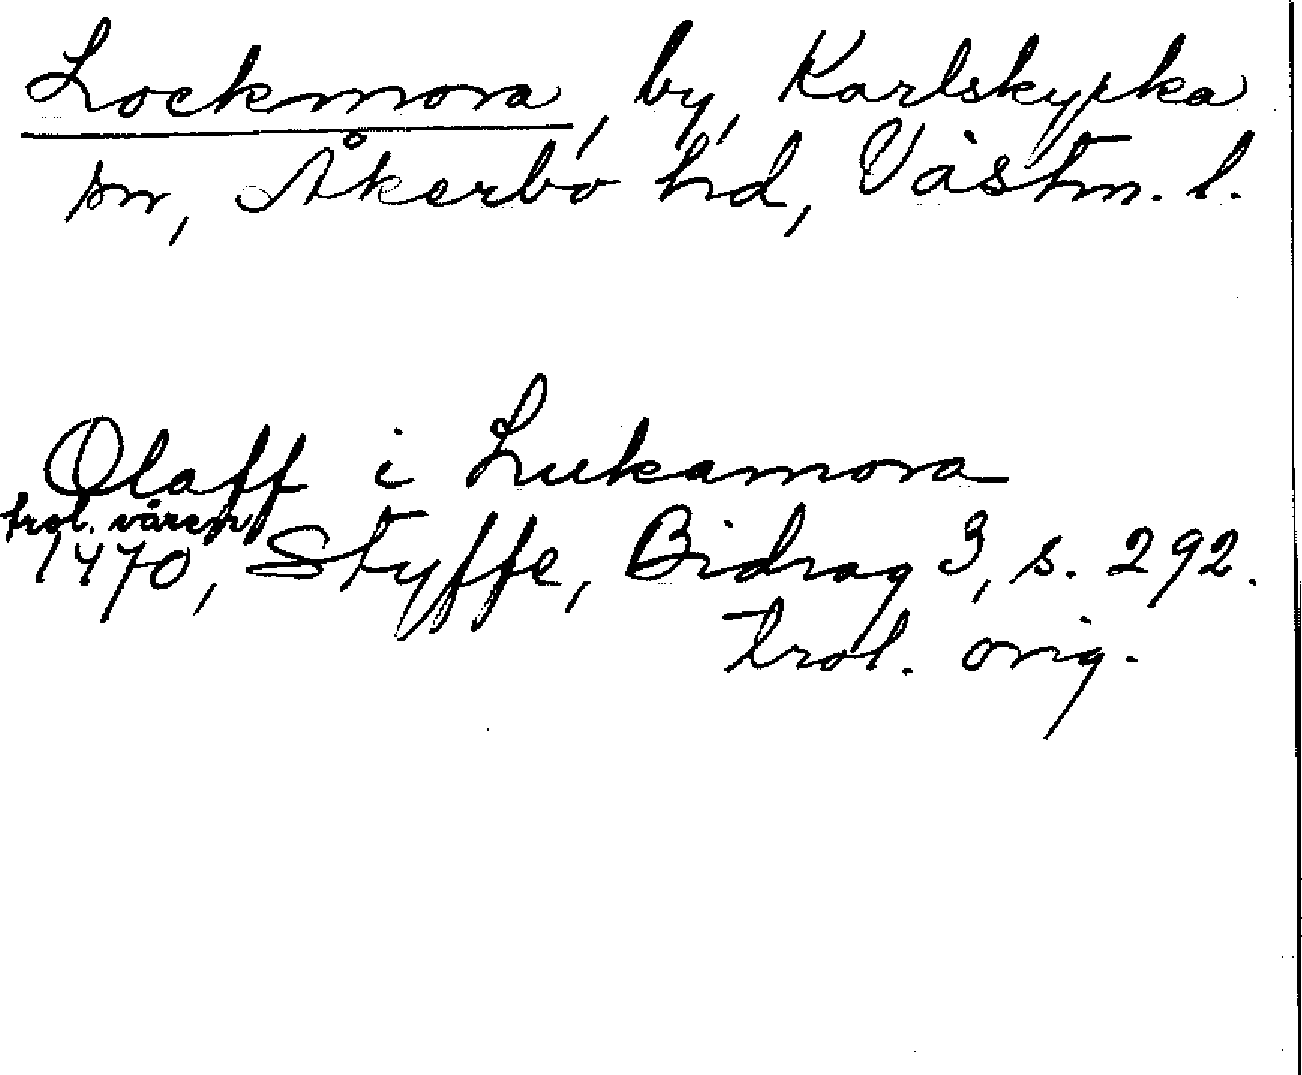 Lockmora, by, Karlskyrka
sn, Åkerbo hd, Västm. l.
Olaff i Lukamora
trol. våren
1470, Styffe, Bidrag 3, s. 292.
trol. orig.